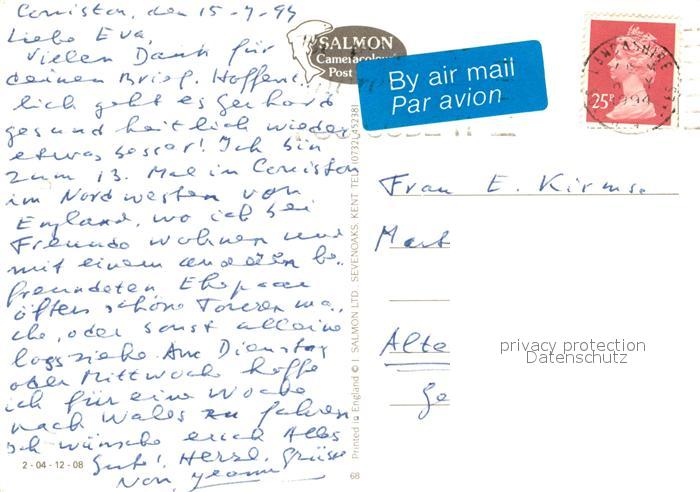 Coniston, den 15-7-94
Liebe Eva,
Vielen Dank für
deinen Brief. Hoffent-
lich geht es Gerhard
gesundheitlich wieder
etwas besser! Ich bin
zum 13. Mal in Coniston
im Nordwesten von
England, wo ich bei
Freunde wohnen und
mit einem anderen be-
freundeten Ehepaar
öfters schöne Touren ma-
che, oder sonst alleine
losziehe. Am Dienstag
oder Mittwoch hoffe
ich für eine Woche
nach Wales zu fahren
Ich wünsche euch Alles
Gute! Herzl. Grüsse
Von
2 - 04 - 12 - 08
SALMON
Cameracolour
Post
By air mail
Par avion
LANCASHIRE
25P
Printed in England © J. SALMON LTD. SEVENOAKS. KENT TEL. (0732) 452381
68
Frau E. Kirmse
Mart
Alte
Ge
privacy protection
Datenschutz